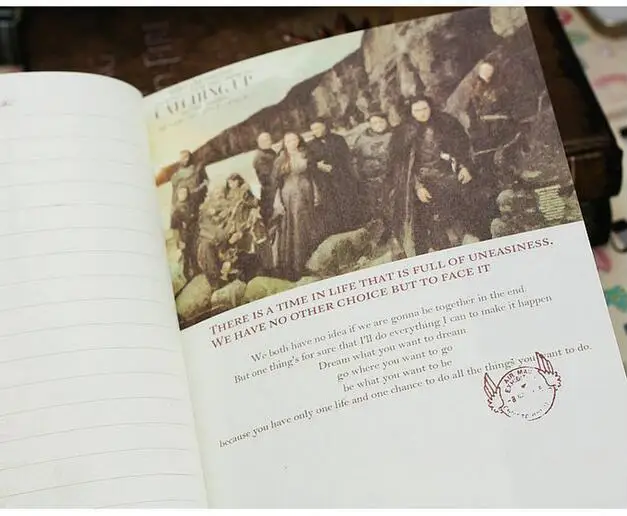 CATCHING UP
THERE IS A TIME IN LIFE THAT IS FULL OF UNEASINESS.
WE HAVE NO OTHER CHOICE BUT TO FACE IT
We both have no idea if we are gonna be together in the end
But one thing's for sure that I'll do everything I can to make it happen
Dream what you want to dream
go where you want to go
be what you want to be
because you have only one life and one chance to do all the things you want to do.
AIR MAIL